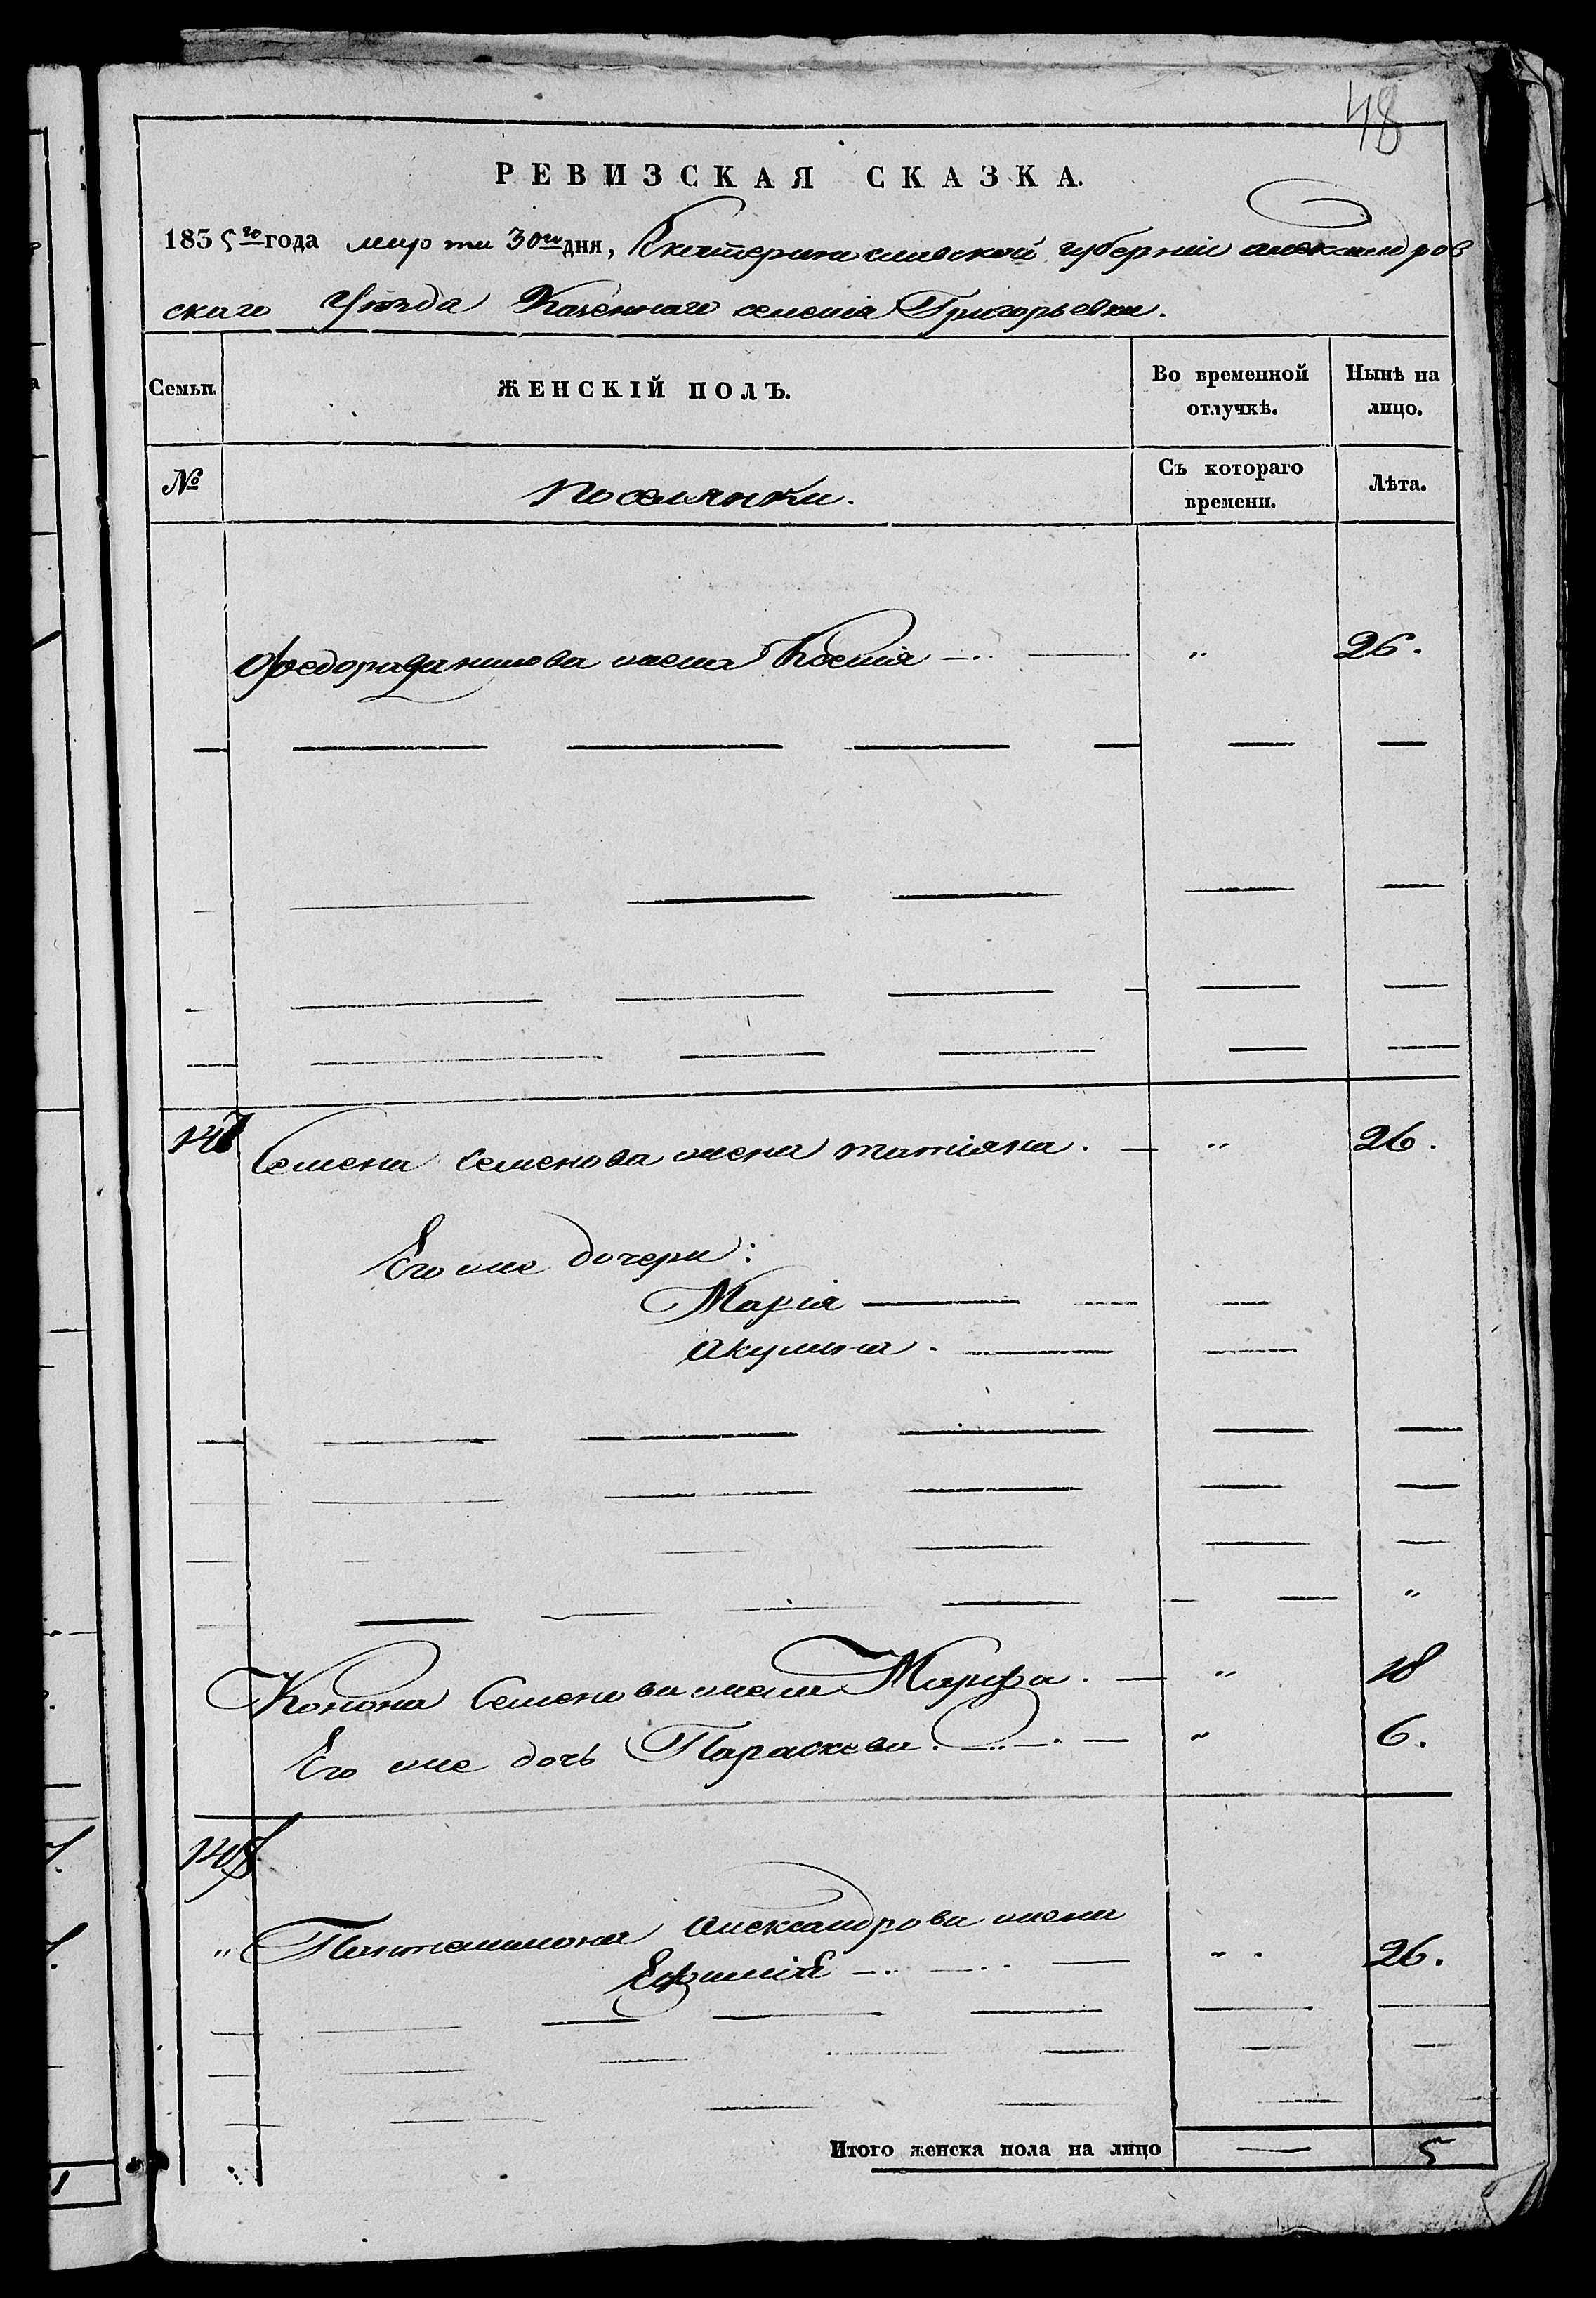 48
РЕВИЗСКАЯ СКАЗКА.
1835го года марта 30го дня, Екатеринославской губерніи александров
скаго Уѣзда Казеннаго селенія Григорьевки.
Семьи.
ЖЕНСКІЙ ПОЛЪ.
Во временной отлучкѣ.
Нынѣ на лицо.
№
Поселянки.
Съ котораго времени.
Лѣта.
Федора данилова жена Ксенія — „ 26.
147 Семена Семенова жена татіяна. — „ 26.
Его же дочери:
Марія —
Акулина. —
Конона Семенова жена Марфа. — „ 18
Его же дочь Параскева. — „ 6.
148
„ Пантелимона Александрова жена
Ефимія — „ 26.
Итого женска пола на лицо — 5